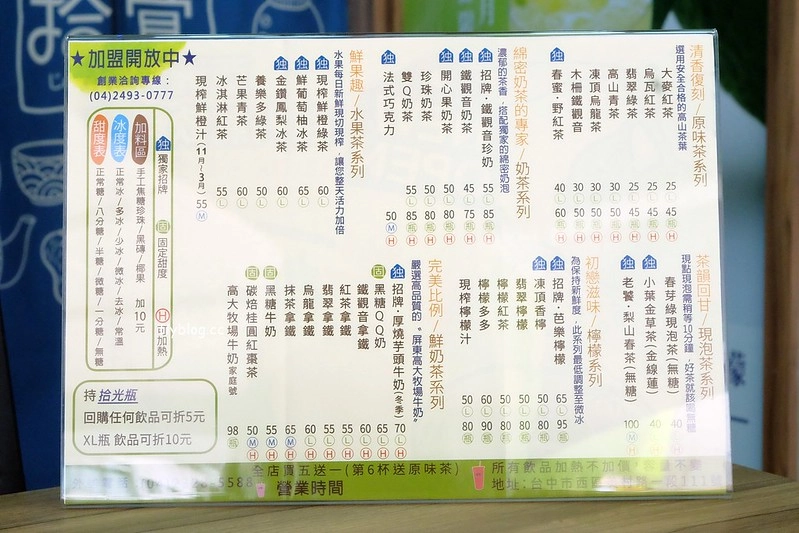 清香復刻/原味茶系列
選用安全合格的高山茶葉
大麥紅茶 25 L 45 H
烏瓦紅茶 25 L 45 H
翡翠綠茶 25 L 45 H
高山青茶 30 L 50 H
凍頂烏龍茶 30 L 50 H
木柵鐵觀音 30 L 50 H
独 春蜜·野紅茶 40 L 60 H
綿密奶茶的專家/奶茶系列
濃郁的茶香,搭配獨家的綿密奶泡
独 招牌·鐵觀音珍奶 55 L 85 H
独 鐵觀音奶茶 45 L 75 H
独 開心果奶茶 50 L 80 H
珍珠奶茶 50 L 80 H
雙Q奶茶 55 L 85
独 法式巧克力 50 M H
鮮果趣/水果茶系列
水果每日新鮮現切現榨,讓您整天活力加倍
独 現榨鮮橙綠茶 60 L
独 鮮葡萄柚冰茶 60 L
独 金鑽鳳梨冰茶 65 L
養樂多綠茶 50 L
芒果青茶 60 L
冰淇淋紅茶 55 L
現榨鮮橙汁(11月~3月) 55 M
★加盟開放中★
創業洽詢專線:
(04)2493-0777
独 獨家招牌 固 固定甜度 H 可加熱
加料區 手工焦糖珍珠/黑磚/椰果 加10元
冰度表 正常冰/多冰/少冰/微冰/去冰/常溫
甜度表 正常糖/八分糖/半糖/微糖/一分糖/無糖
持 拾光瓶
回購任何飲品可折5元
XL瓶 飲品可折10元
茶韻回甘/現泡茶系列
現點現泡需稍等10分鐘,好茶就該喝無糖
春芽綠現泡茶(無糖) 40
独 小葉金草茶(金線蓮) 40
独 老饕·梨山春茶(無糖) 100 M H
初戀滋味/檸檬系列
為保持新鮮度,此系列最低調整至微冰
独 招牌·芭樂檸檬 65 L 95 瓶
独 凍頂香檸 50 L 80 瓶
翡翠檸檬 50 L 80 瓶
檸檬紅茶 50 L 80 瓶
檸檬多多 60 L 90 瓶
現榨檸檬汁 50 L 80 瓶
完美比例/鮮奶茶系列
嚴選高品質的"屏東高大牧場牛奶"
独 招牌·厚燒芋頭牛奶(冬季) 70 L H
固 黑糖QQ奶 65 L H
鐵觀音拿鐵 60 L H
紅茶拿鐵 55 L H
翡翠拿鐵 55 L H
烏龍拿鐵 60 L H
抹茶拿鐵 65 M H
固 黑糖牛奶 55 M H
固 碳焙桂圓紅棗茶 50 M H
高大牧場牛奶家庭號 98 瓶
全店買五送一(第6杯送原味茶)
營業時間
所有飲品加熱不加價
地址:台中市西區